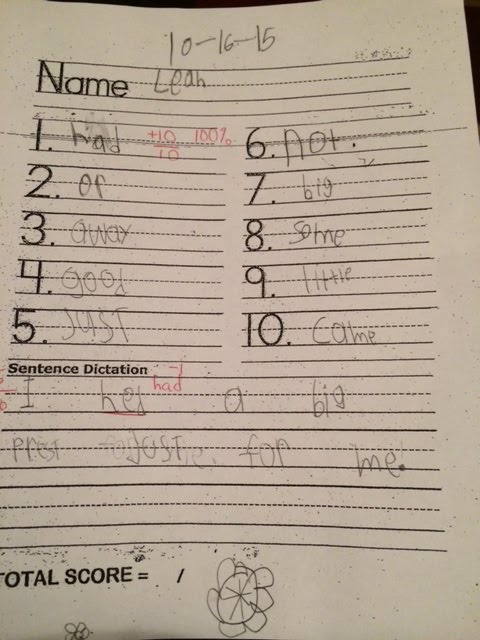 10-16-15
Name Leah
1. had +10/10 100% 6. not.
2. or 7. big
3. away 8. some
4. good 9. little
5. JUST 10. came
Sentence Dictation -1
had
I hed a big
prest JUST for me.
TOTAL SCORE = /